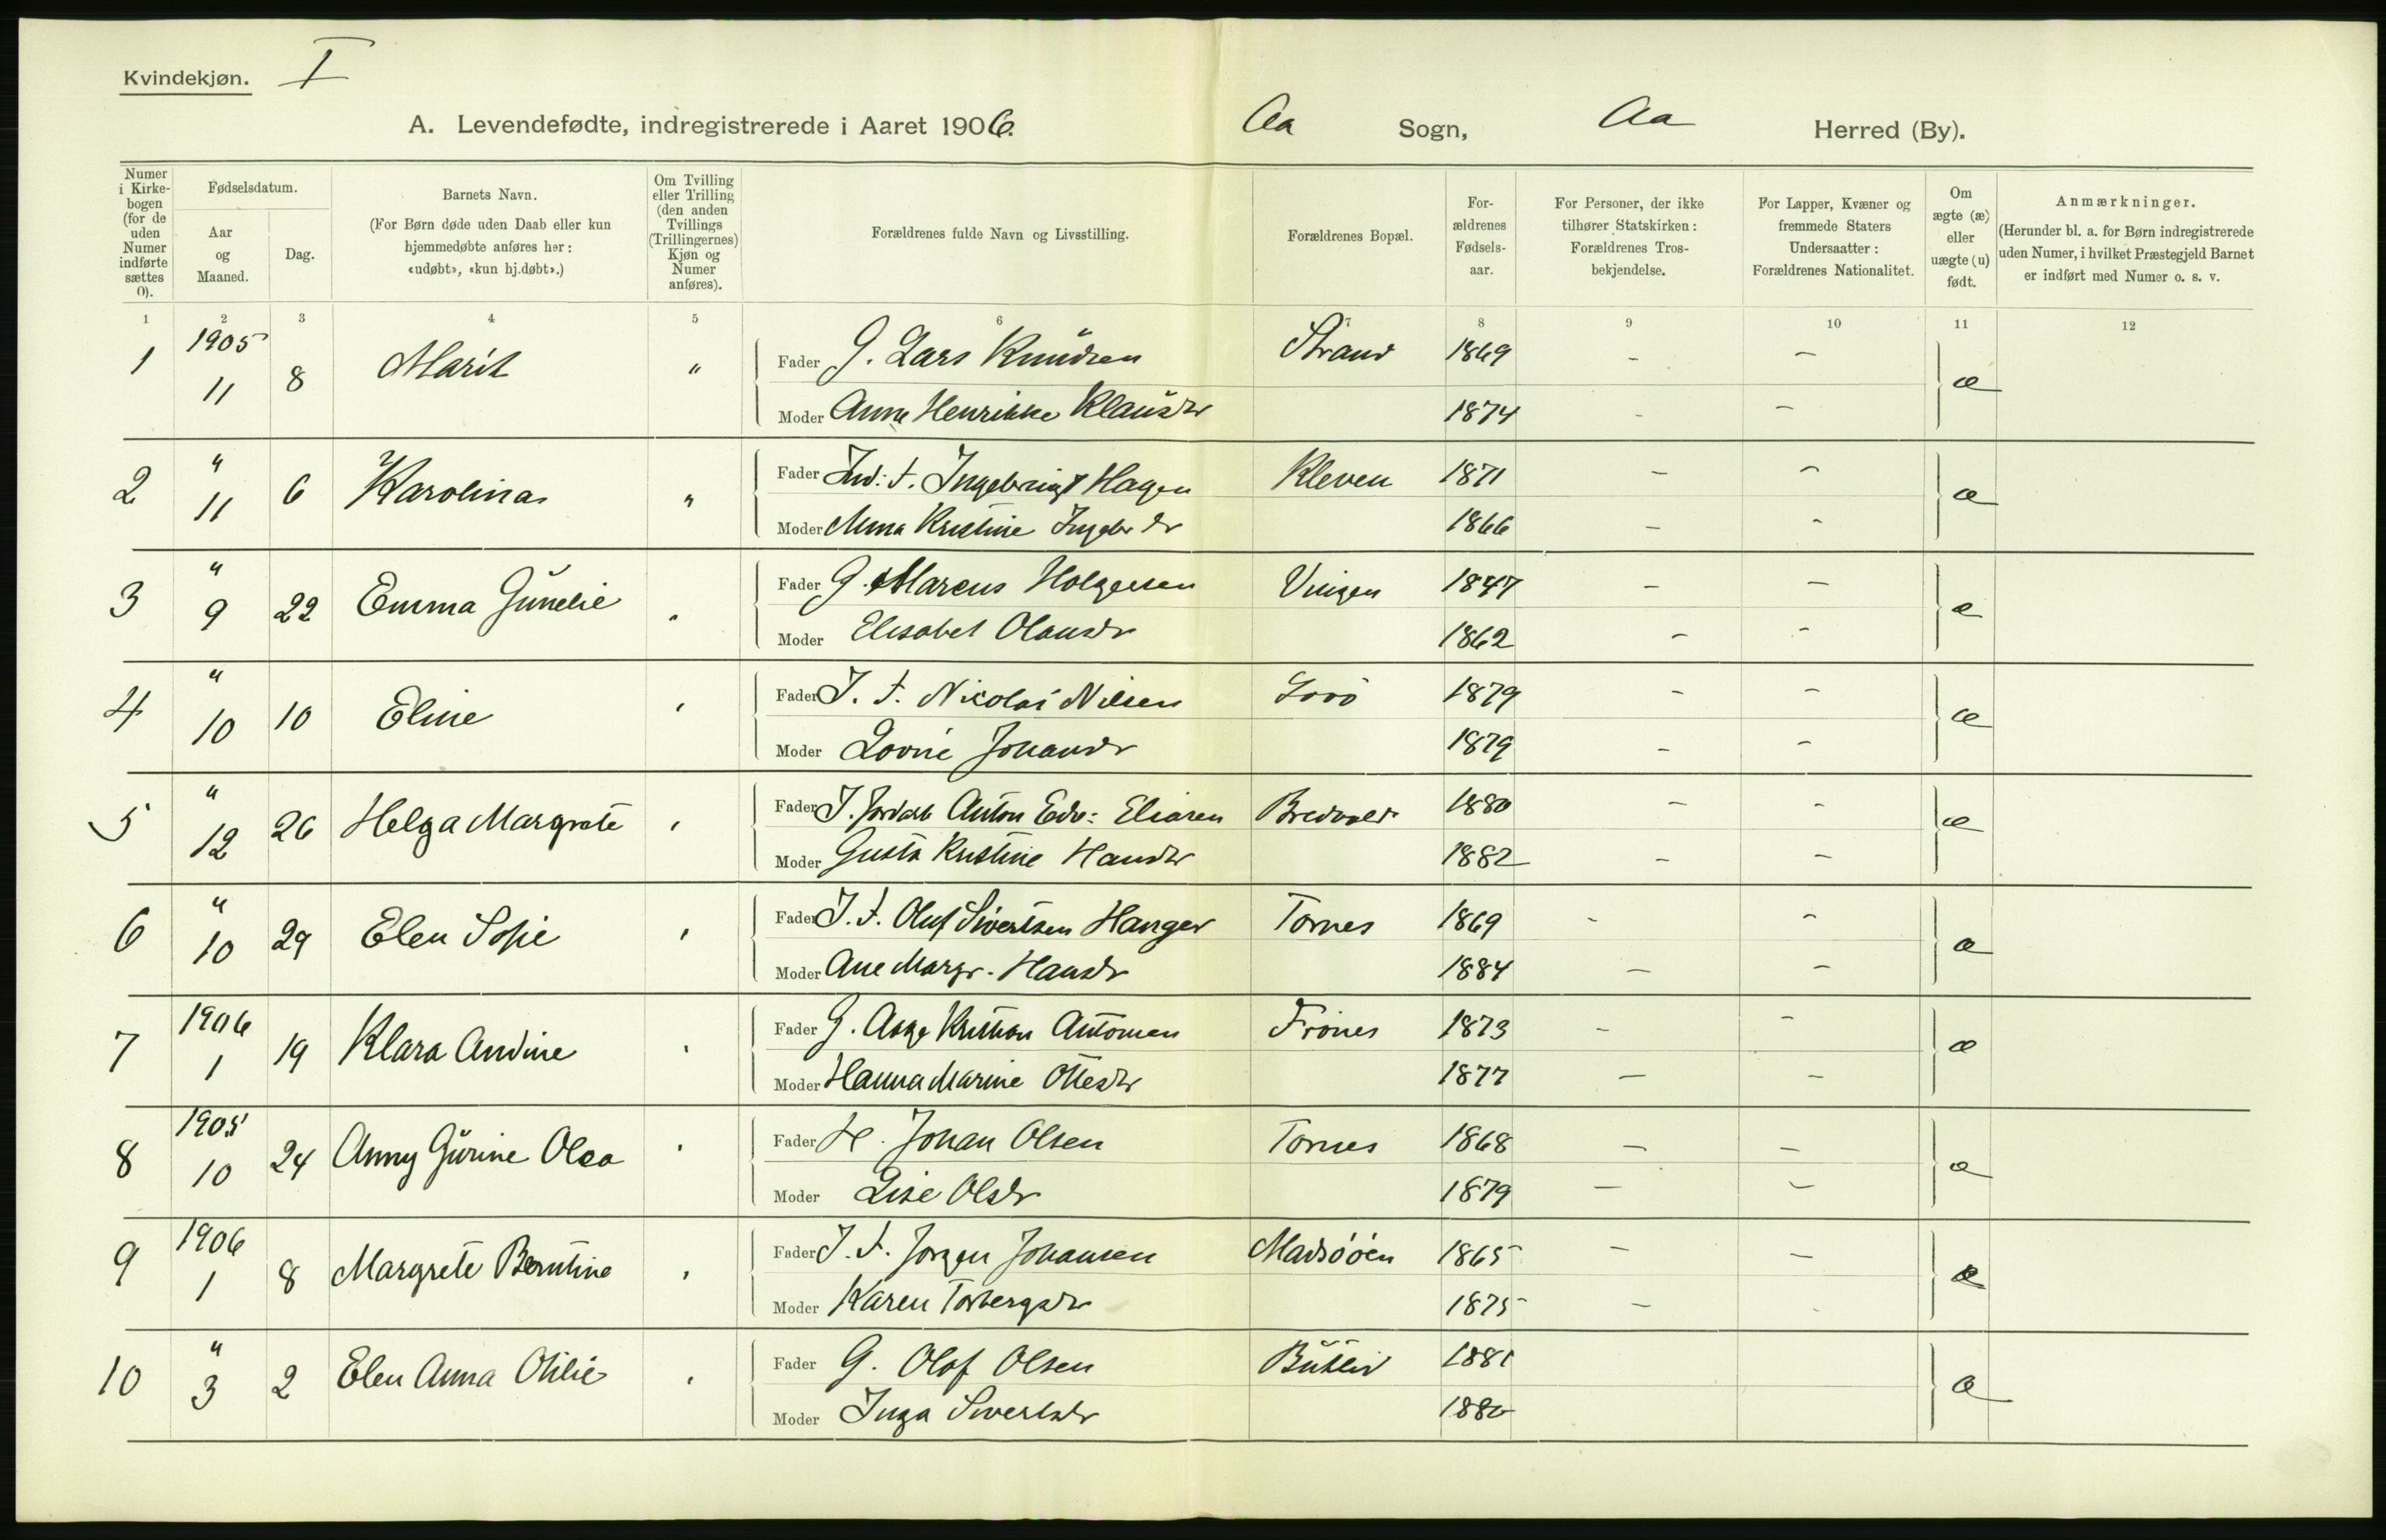 Kvindekjøn. I
A. Levendefødte, indregistrerede i Aaret 1906. Aa Sogn, Aa Herred (By).
Numer i Kirke-bogen (for de uden Numer indførte sættes 0).
Fødselsdatum.
Aar og Maaned.
Dag.
Barnets Navn.
(For Børn døde uden Daab eller kun hjemmedøbte anføres her: «udøbt», «kun hj.døbt».)
Om Tvilling eller Trilling (den anden Tvillings (Trillingernes) Kjøn og Numer anføres).
Forældrenes fulde Navn og Livsstilling.
Forældrenes Bopæl.
For-ældrenes Fødsels-aar.
For Personer, der ikke tilhører Statskirken: Forældrenes Tros-bekjendelse.
For Lapper, Kvæner og fremmede Staters Undersaatter: Forældrenes Nationalitet.
Om ægte (æ) eller uægte (u) født.
Anmærkninger.
(Herunder bl. a. for Børn indregistrerede uden Numer, i hvilket Præstegjeld Barnet er indført med Numer o. s. v.
1 2 3 4 5 6 7 8 9 10 11 12
1 1905 11 8 Marit " Fader G. Lars Knudsen Strand 1869 - - æ
Moder Anne Henrikke Klausdr 1874 - -
2 " 11 6 Karolina " Fader Ind: f. Ingebrigt Hagen Kleven 1871 - - æ
Moder Anna Kristine Ingebrdr 1866 - -
3 " 9 22 Emma Gunelie " Fader G. Marcus Holgersen Vingen 1847 - - æ
Moder Elisabet Olausdr 1862 - -
4 " 10 10 Eline " Fader I. f. Nicolai Nilsen 1879 - - æ
Moder Lovrie Johansdr 1879 - -
5 " 12 26 Helga Margrete " Fader I. Anton Edv: Eliasen Bredvold 1880 - - æ
Moder Gusta Kristine Hansdr 1882 - -
6 " 10 29 Elen Sofie " Fader I. f. Oluf Sivertsen Hanger Tornes 1869 - - æ
Moder Ane Margr. Hansdr 1884 - -
7 1906 1 19 Klara Andine " Fader G. Aage Kristian Antonsen Frönes 1873 - - æ
Moder Hanna Marine Ottesdr 1877 - -
8 1905 10 24 Anny Gurine Olea " Fader H. Johan Olsen Tornes 1868 - - æ
Moder Lise Olsdr 1879 - -
9 1906 1 8 Margrete Berntine " Fader I. f. Jørgen Johansen Madsööen 1865 - - æ
Moder Karen Torbergsdr 1875 - -
10 " 3 2 Elen Anna Otilie " Fader G. Olof Olsen 1881 æ
Moder Inga Sivertsdr 1880